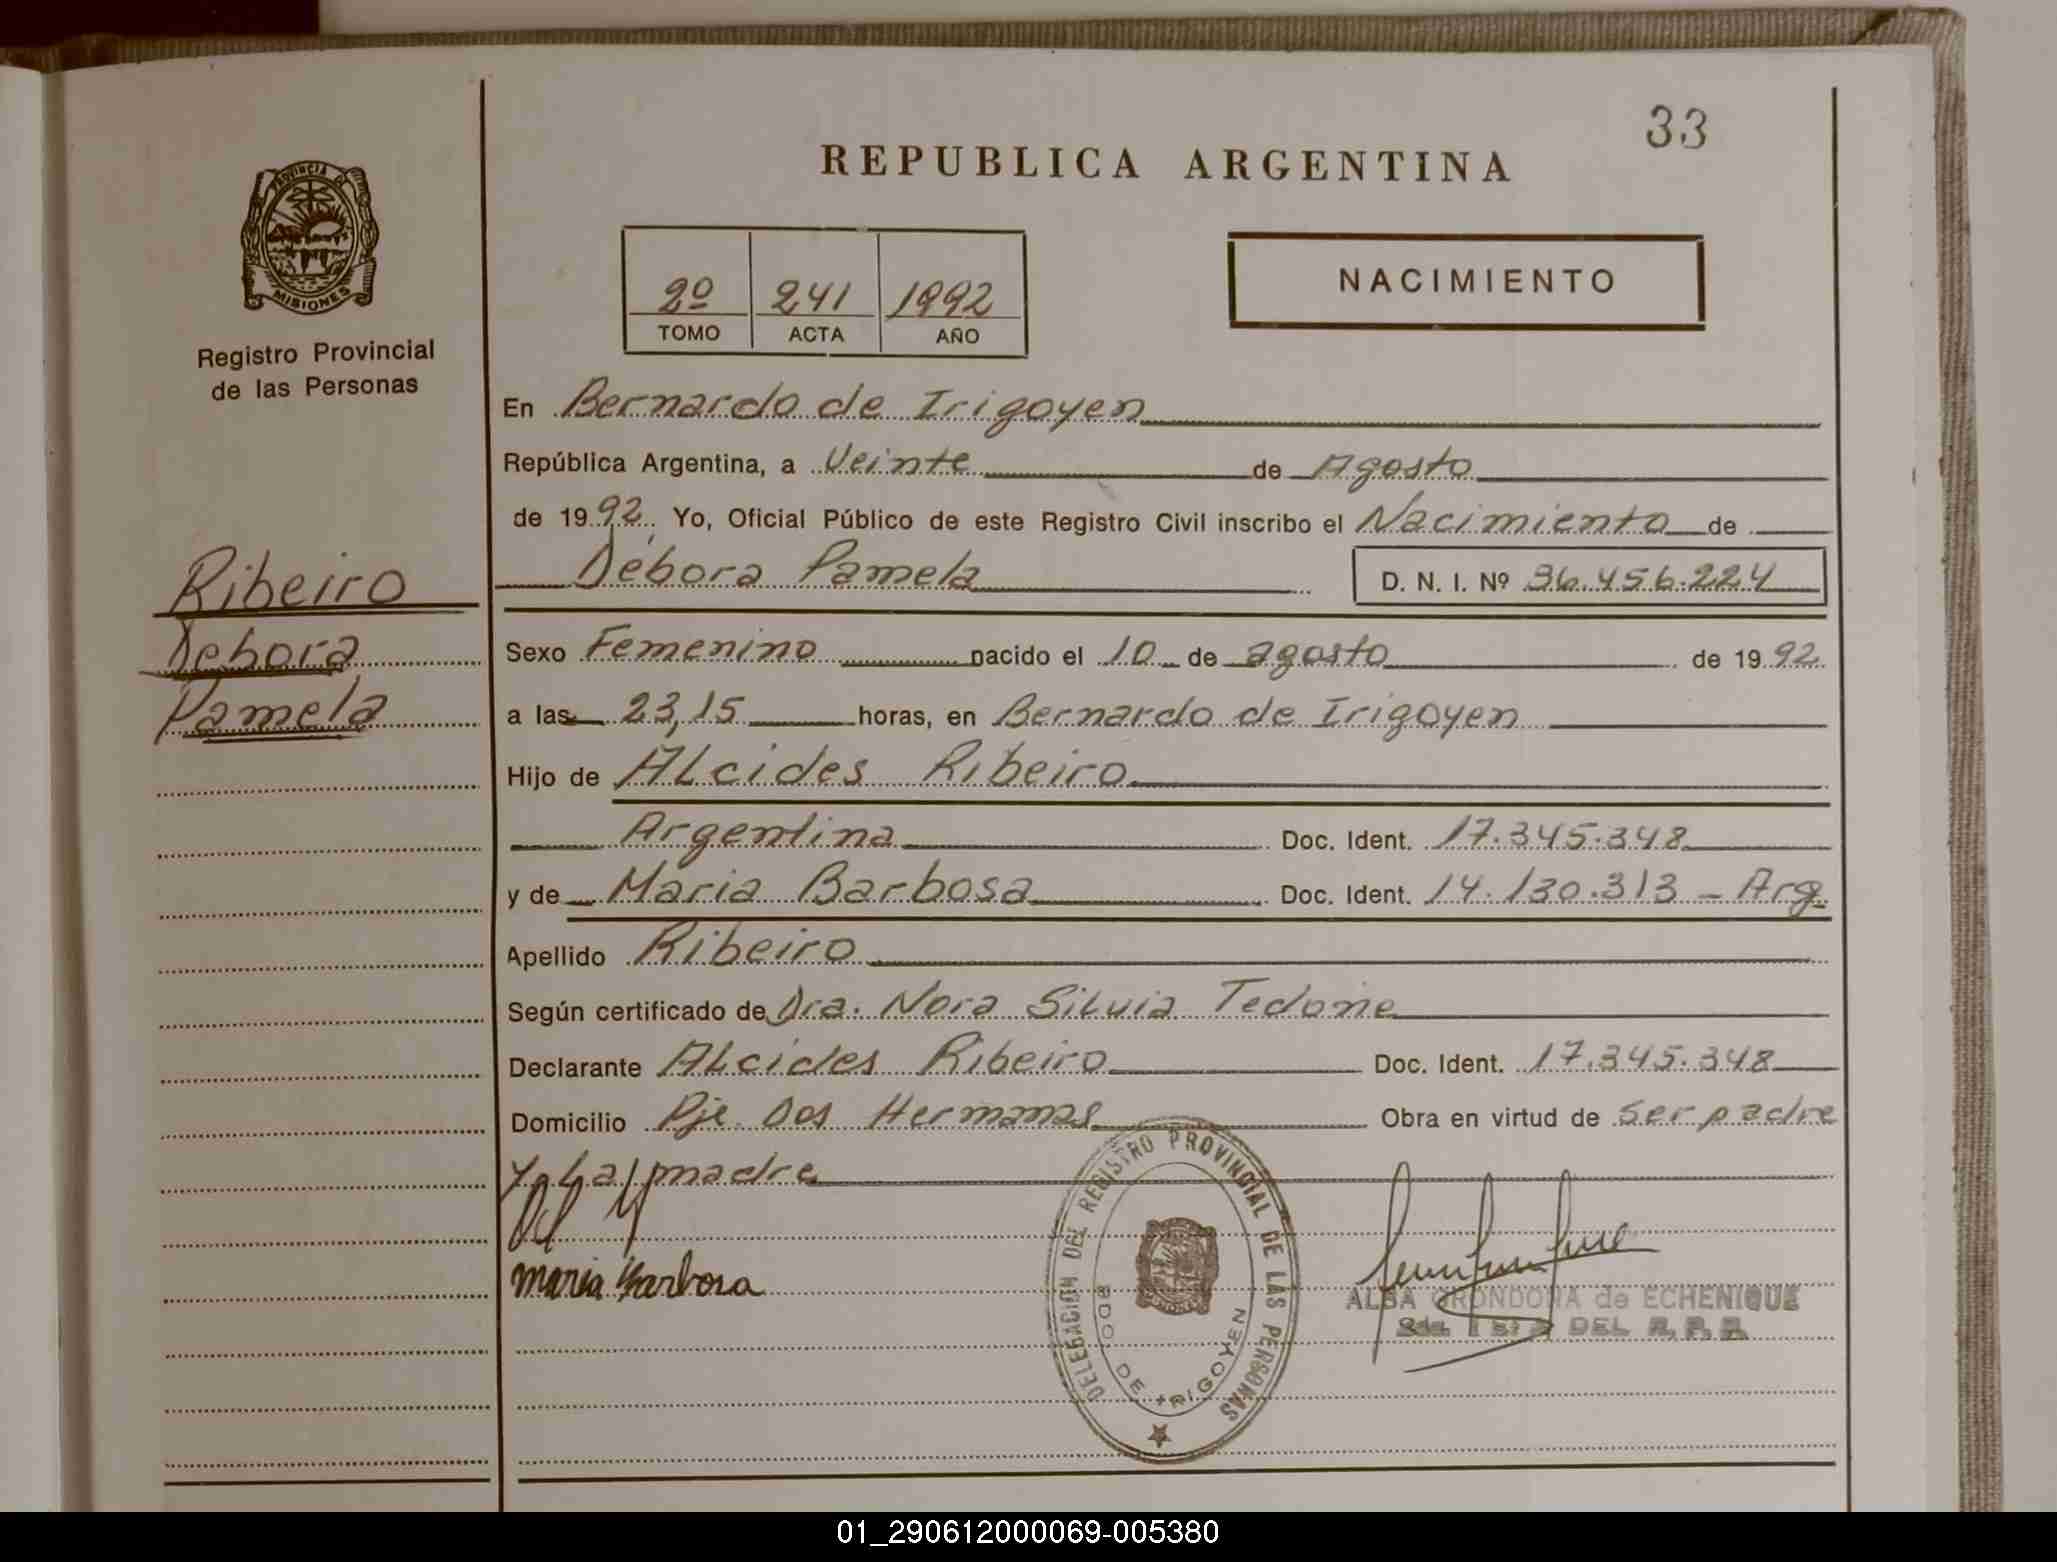 33
REPUBLICA ARGENTINA
PROVINCIA DE
MISIONES
Registro Provincial
de las Personas
2º 241 1992
TOMO ACTA AÑO
NACIMIENTO
En Bernardo de Irigoyen
República Argentina, a Veinte de Agosto
de 1992. Yo, Oficial Público de este Registro Civil inscribo el Nacimiento de
Débora Pamela D. N. I. Nº 36.456.224
Ribeiro
Débora
Pamela
Sexo Femenino nacido el 10 de agosto de 1992
a las 23,15 horas, en Bernardo de Irigoyen
Hijo de ALcides Ribeiro
Argentina Doc. Ident. 17.345.348
y de Maria Barbosa Doc. Ident. 14.130.313 - Arg.
Apellido Ribeiro
Según certificado de Dra. Nora Silvia Tedone
Declarante ALcides Ribeiro Doc. Ident. 17.345.348
Domicilio Pje. Dos Hermanas Obra en virtud de Ser padre
y La madre
maria Barbosa
DELEGACION DEL REGISTRO PROVINCIAL DE LAS PERSONAS
BDO. DE IRIGOYEN
ALBA GRONDONA de ECHENIQUE
DEL R. P. P.
01_290612000069-005380